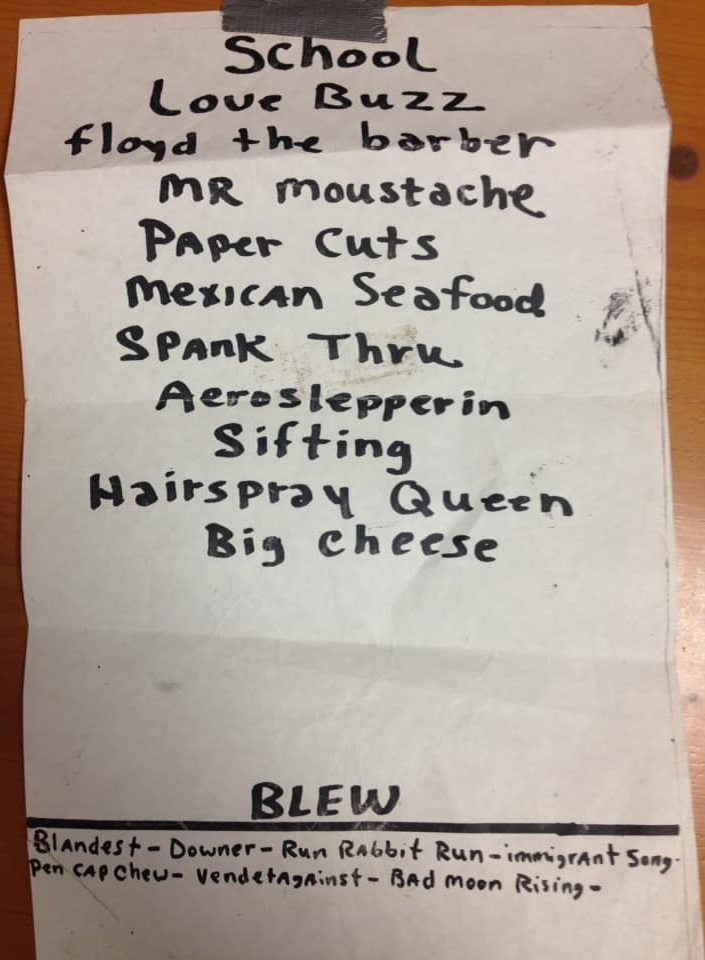 School
Love Buzz
floyd the barber
MR moustache
PAPer Cuts
MexICAN Seafood
SPAnK Thru
Aeroslepperin
Sifting
Hairspray Queen
Big cheese
BLEW
Blandest - Downer - Run RAbbit Run - immigrAnt Song -
Pen CAP Chew - VendetAgAinst - BAd Moon Rising -